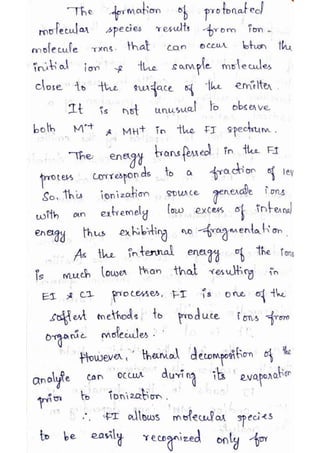 The formation of protonated
molecular species results from ion-
molecule rxns. that can occur btwn the
initial ion & the sample molecules
close to the surface of the emitter.
It is not unusual to observe
both M•+ & MH+ in the FI spectrum.
The energy transferred in the FI
process corresponds to a fraction of 1eV
So, this ionization source generate ions
with an extremely low excess of internal
energy thus exhibiting no fragmentation.
As the internal energy of the ions
is much lower than that resulting in
EI & CI processes, FI is one of the
softest methods to produce ions from
organic molecules.
However, thermal decomposition of the
analyte can occur during its evaporation
prior to ionization.
∴ FI allows molecular species
to be easily recognized only for